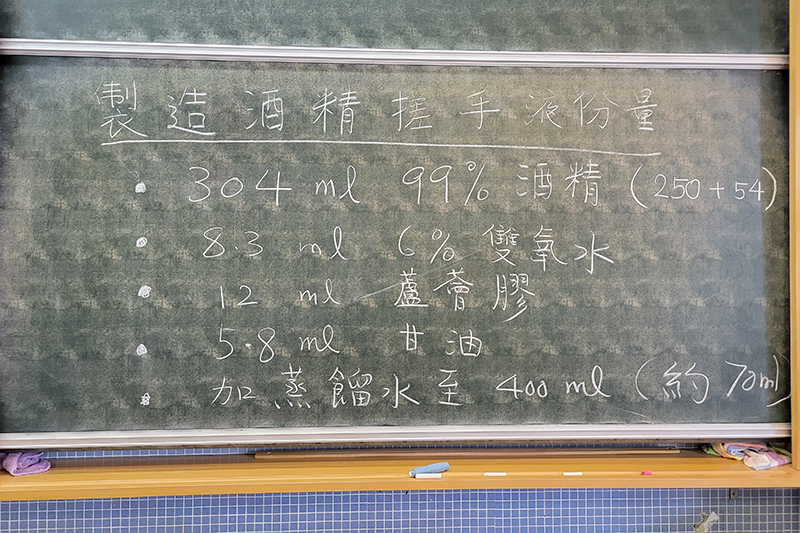 製造酒精搓手液份量
• 304 ml 99% 酒精 (250+54)
• 8.3 ml 6% 雙氧水
• 12 ml 蘆薈膠
• 5.8 ml 甘油
• 加蒸餾水至 400 ml (約 70ml)